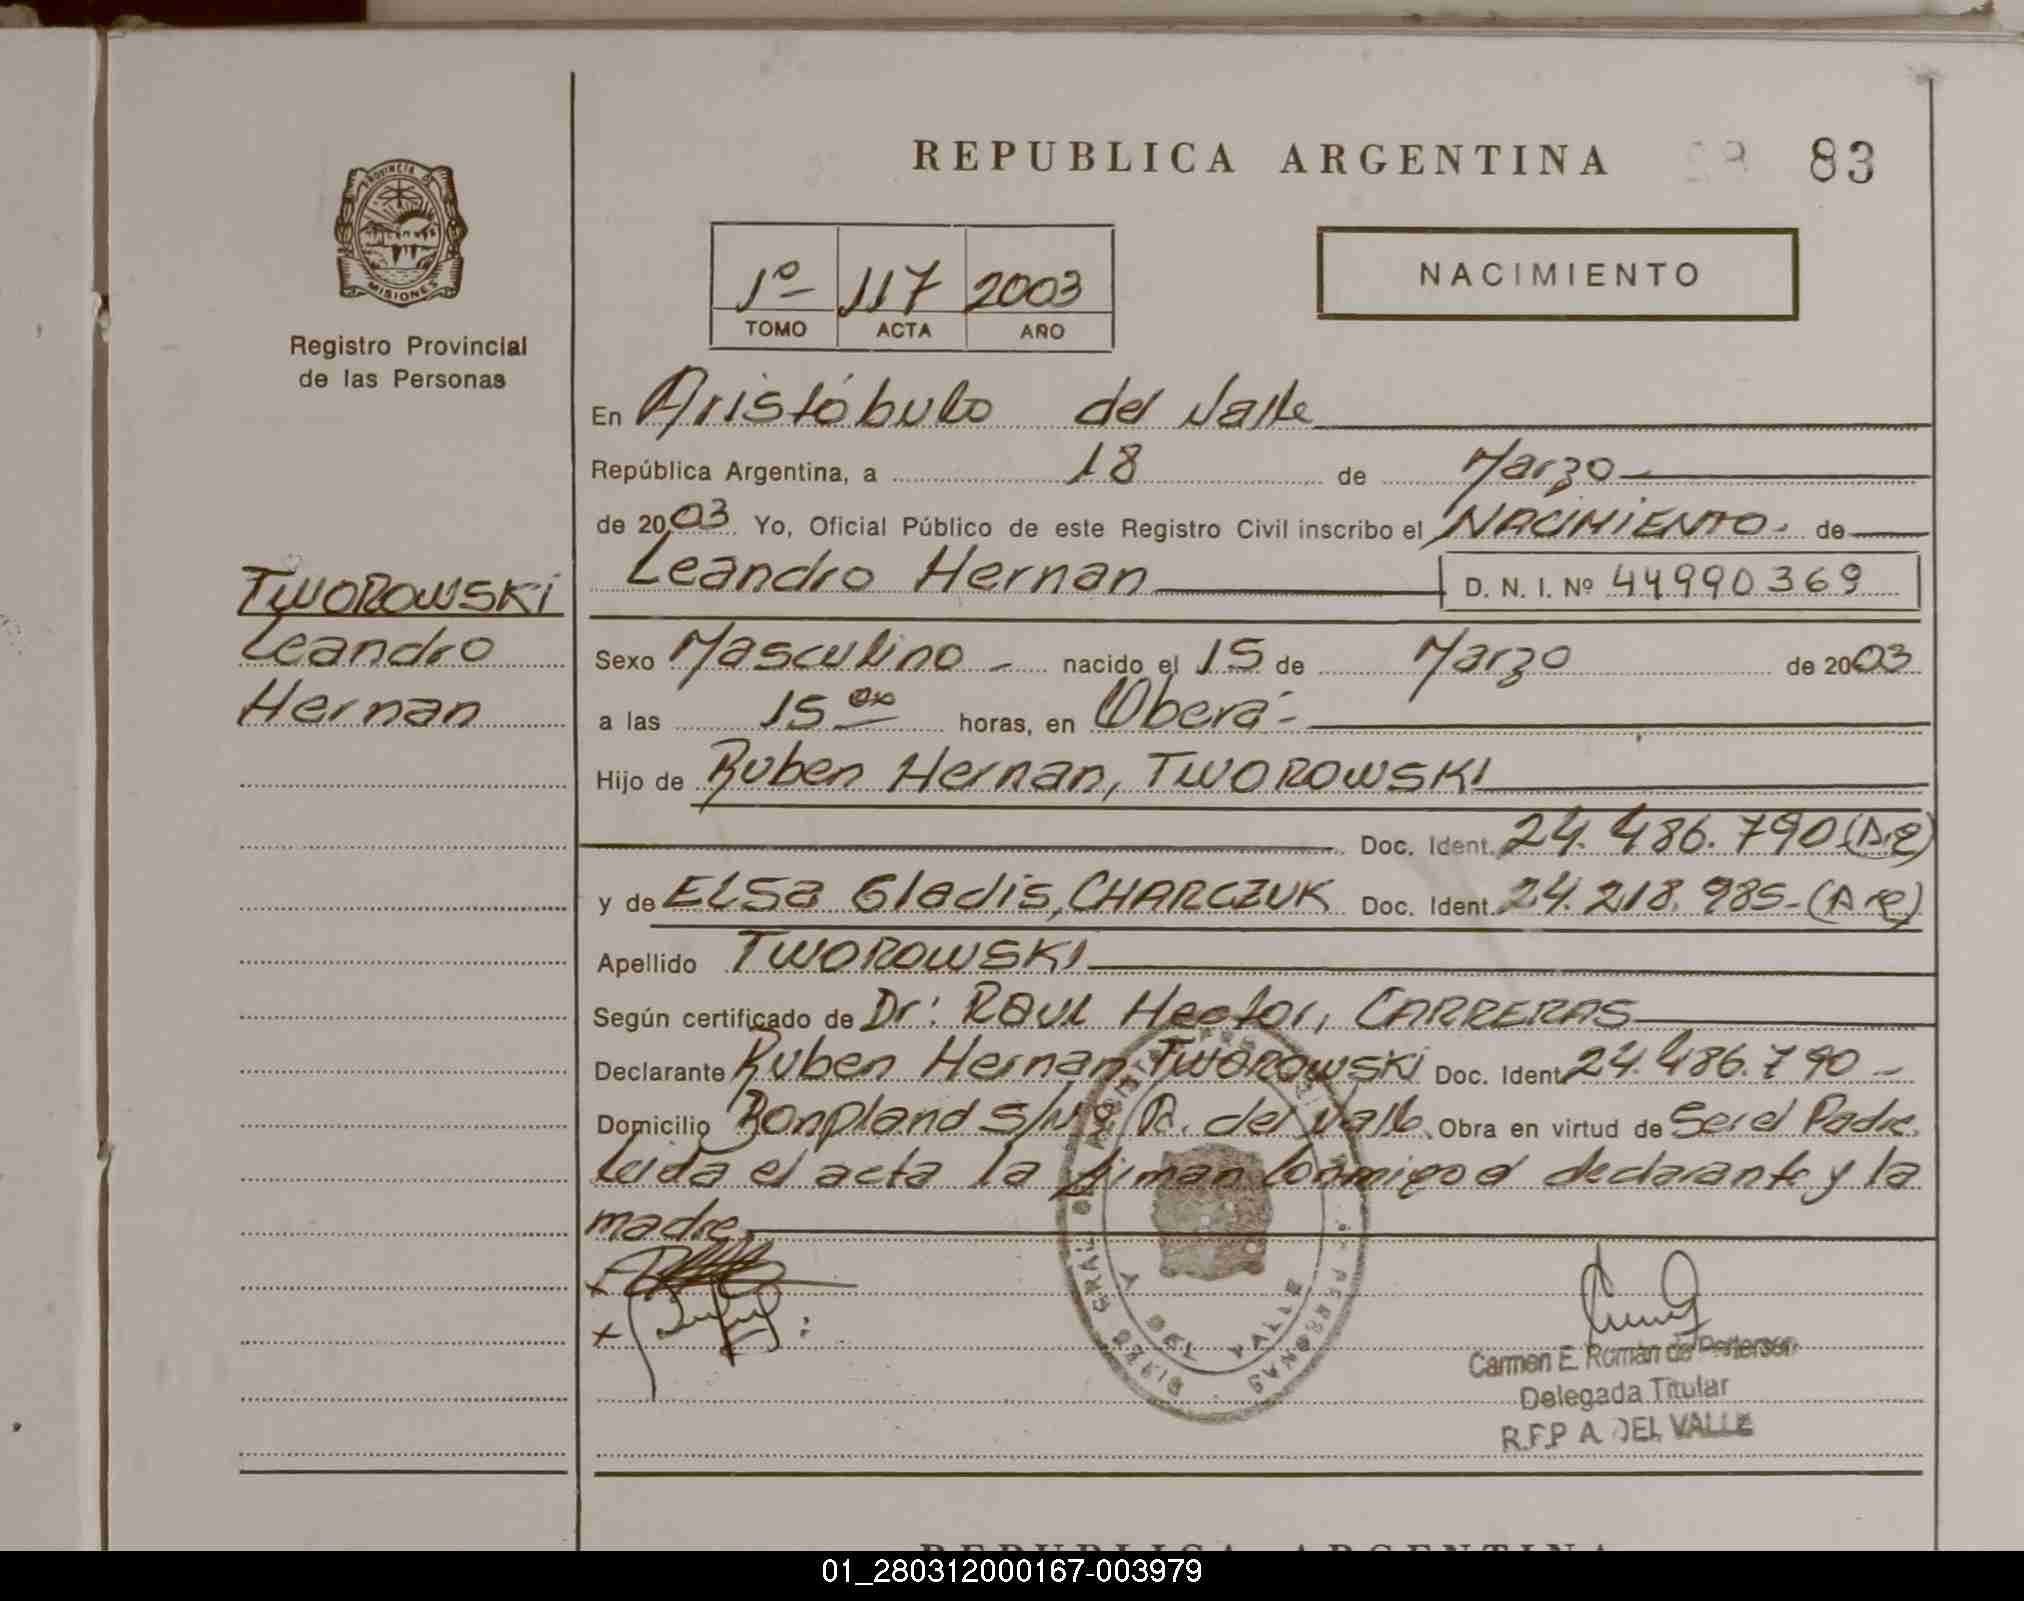 REPUBLICA ARGENTINA 83
PROVINCIA DE
MISIONES
Registro Provincial
de las Personas
1º 117 2003
TOMO ACTA AÑO
NACIMIENTO
En Aristóbulo del Valle
República Argentina, a 18 de Marzo
de 2003 Yo, Oficial Público de este Registro Civil inscribo el NACIMIENTO de
Leandro Hernan D. N. I. Nº 44990369
TWOROWSKI
Leandro
Hernan
Sexo Masculino nacido el 15 de Marzo de 2003
a las 15 00 horas, en Oberá
Hijo de Ruben Hernan, TWOROWSKI
Doc. Ident. 24.486.790 (Arg)
y de ELSa Gladis, CHARCZUK Doc. Ident. 24.218.985 - (Arg)
Apellido TWOROWSKI
Según certificado de Dr: RAUL Hector, CARRERAS
Declarante Ruben Hernan TWOROWSKI Doc. Ident. 24.486.790 -
Domicilio Bonpland s/nº A. del Valle. Obra en virtud de Ser el Padre.
Leida el acta la firman conmigo el declarante y la
madre.
Carmen E. Román de Pettersen
Delegada Titular
R.P.P A. DEL VALLE
REPUBLICA ARGENTINA
01_280312000167-003979